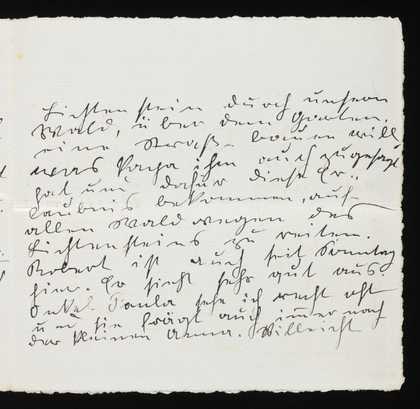 Lichtenstein durch unsern
Wald, über dem Garten,
eine Straße bauen will
was Papa ihm auch zugesagt
hat und dafür die Er-
laubnis bekommen, auf
allen Waldwegen des
Lichtensteins zu reiten.
Robert ist auch seit Sonntag
hier. Er sieht sehr gut aus
Onkel Paula sehe ich recht oft
und sie frägt auch immer nach
der kleinen Anna. Villeicht